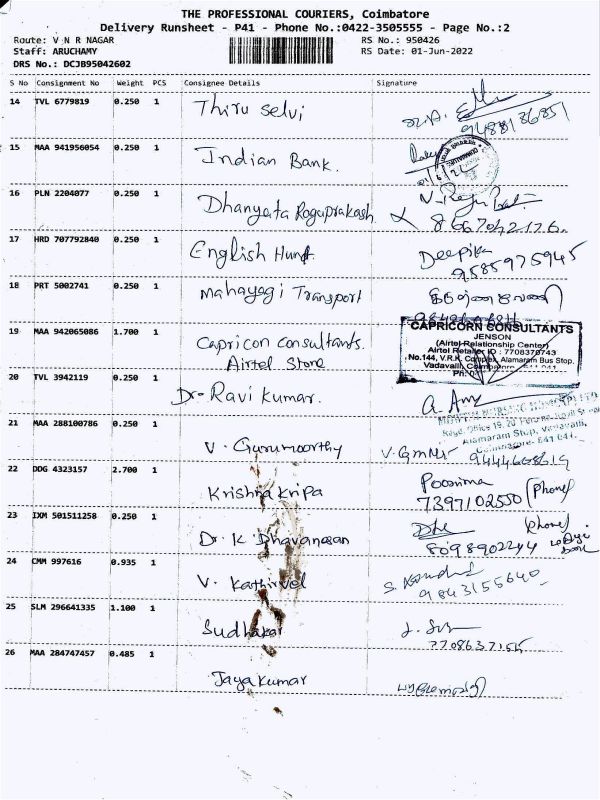 THE PROFESSIONAL COURIERS, Coimbatore
Delivery Runsheet - P41 - Phone No.:0422-3505555 - Page No.:2
Route: V N R NAGAR RS No.: 950426
Staff: ARUCHAMY RS Date: 01-Jun-2022
DRS No.: DCJB95042602
S No Consignment No Weight PCS Consignee Details Signature
14 TVL 6779819 0.250 1 Thiru selvi
9488136851
15 MAA 941956054 0.250 1 Indian Bank.
16 PLN 2204077 0.250 1 Dhanyata Roguprakash
17 HRD 707792840 0.250 1 English Hunt. Deepika
9585975945
18 PRT 5002741 0.250 1 Mahayagi Transport
19 MAA 942065086 1.700 1 Capricon consultants.
Airtel Store
CAPRICORN CONSULTANTS
JENSON
(Airtel Relationship Center)
Airtel Retailer ID : 7708370743
No.144, V.R.K. Complex, Alamaram Bus Stop,
Vadavalli, Coimbatore
20 TVL 3942119 0.250 1 Dr-Ravi kumar.
21 MAA 288100786 0.250 1 V. Gurumoorthy
Alamaram Stop, Vadavalli,
22 DDG 4323157 2.700 1 Krishna Kripa Poornima
7397102550 (Phone)
23 IXM 501511258 0.250 1 Dr. K Dhavanesan (phone)
8098902244
24 CMM 997616 0.935 1 V. Kathirvel
9843155640
25 SLM 296641335 1.100 1 Sudhakar
26 MAA 284747457 0.485 1 Jayakumar